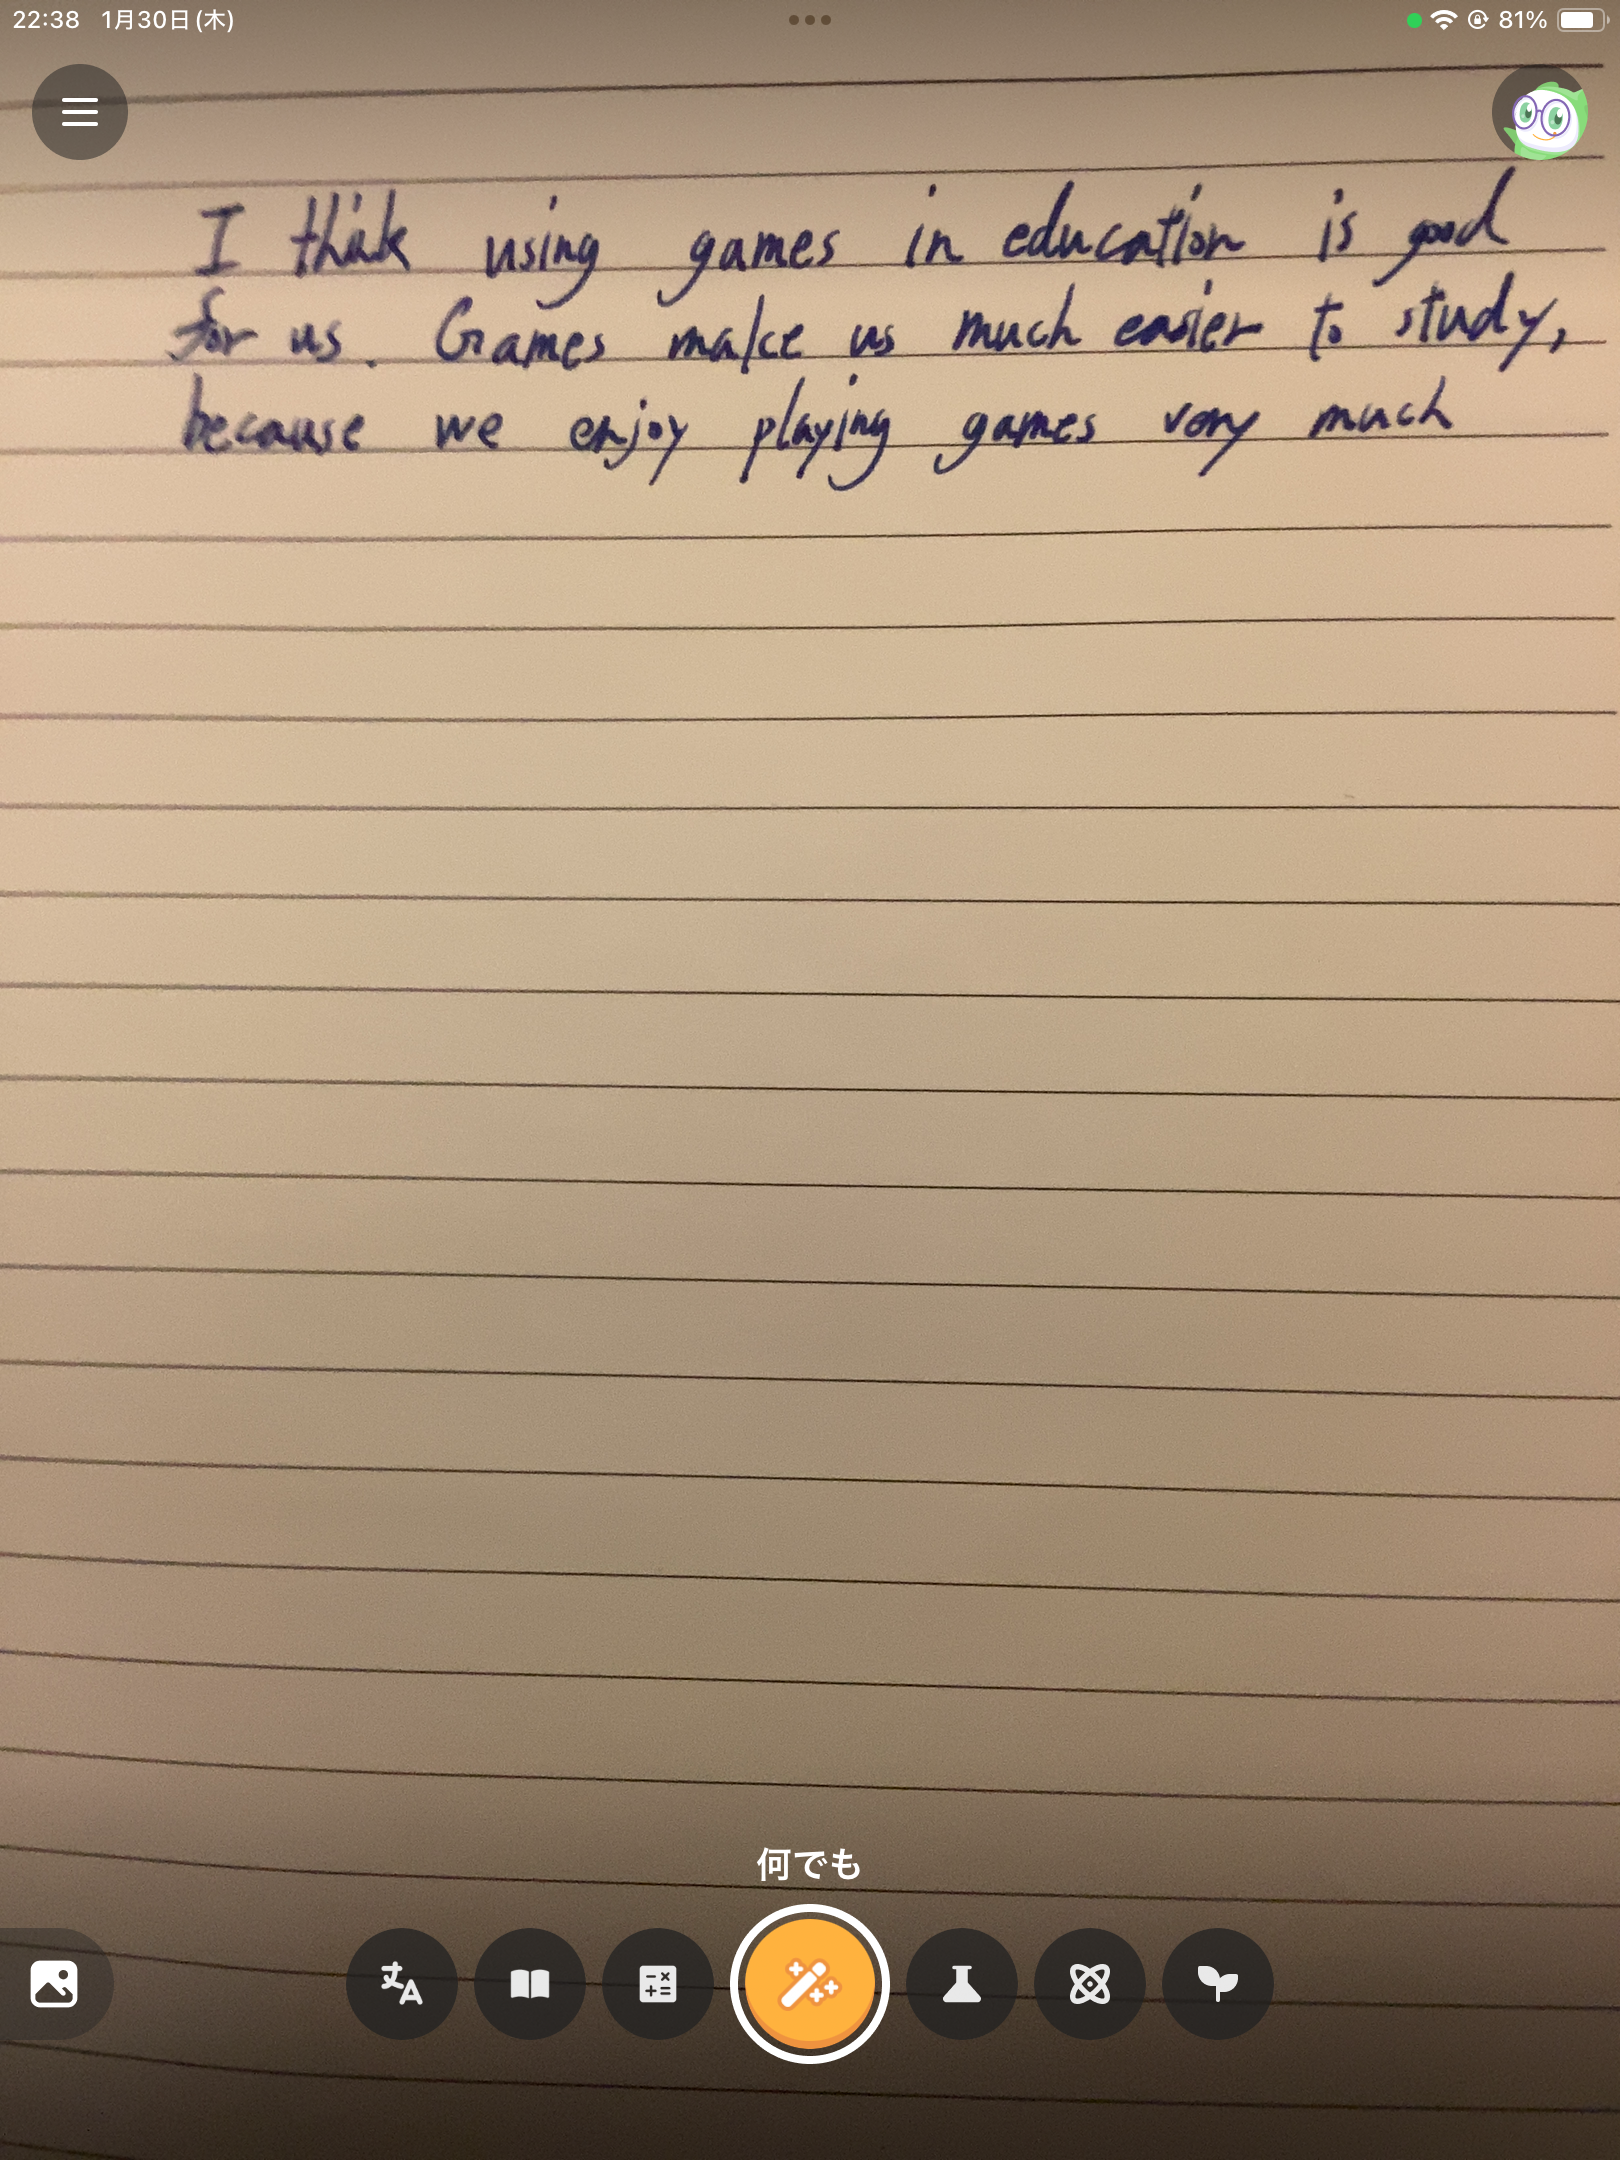 22:38 1月30日(木) 81%
I think using games in education is good
for us. Games make us much easier to study,
because we enjoy playing games very much
何でも